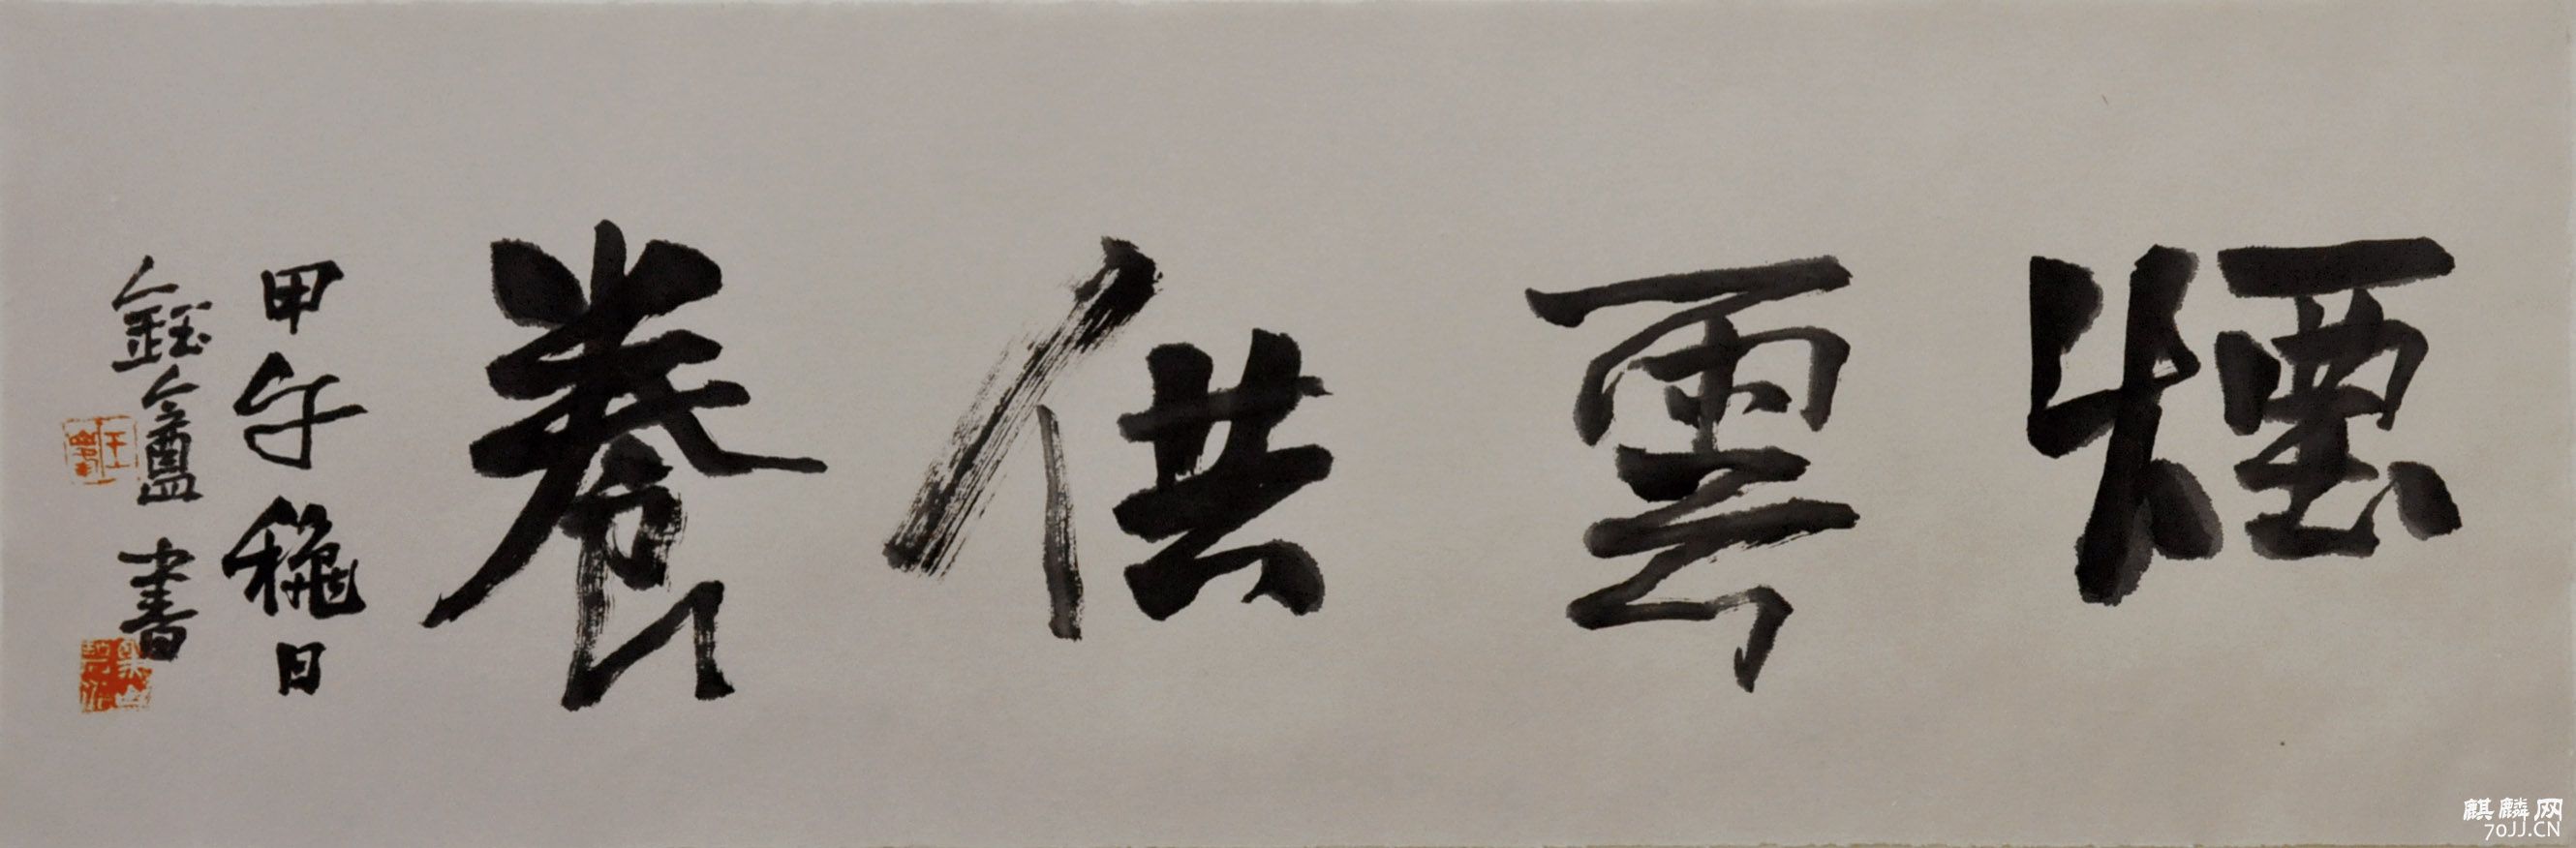 煙雲供養
甲午龝日
鈺盦書
麒麟网
70JJ.CN